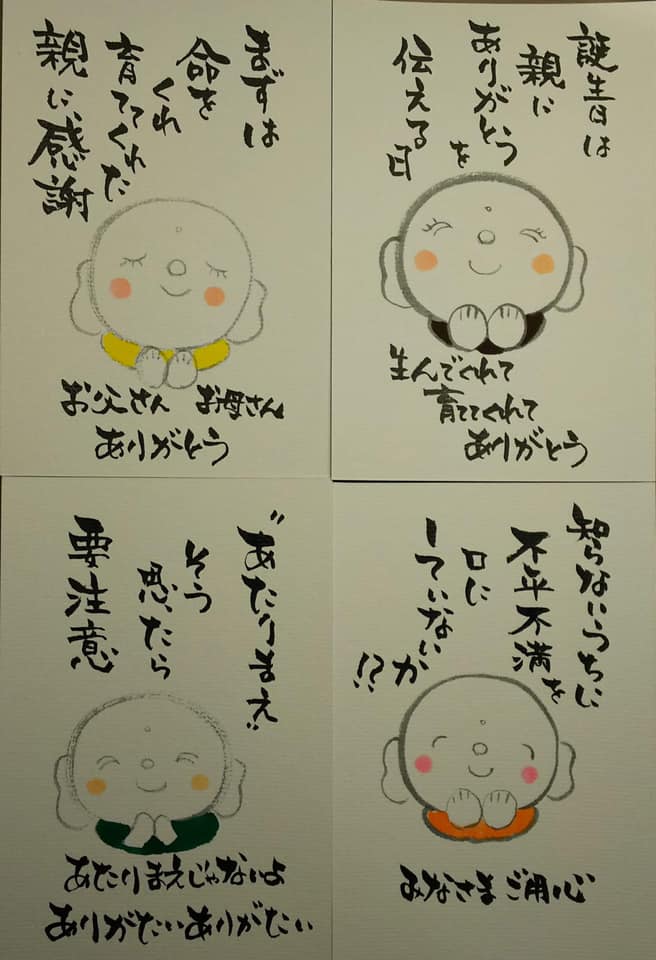 まずは
命を
くれ
育ててくれた
親に、感謝
お父さん お母さん
ありがとう
誕生日は
親に
ありがとう
を
伝える日
生んでくれて
育ててくれて
ありがとう
"あたりまえ"
そう
思ったら
要注意
あたりまえじゃないよ
ありがたいありがたい
知らないうちに
不平不満を
口に
していないか
!?
みなさまご用心